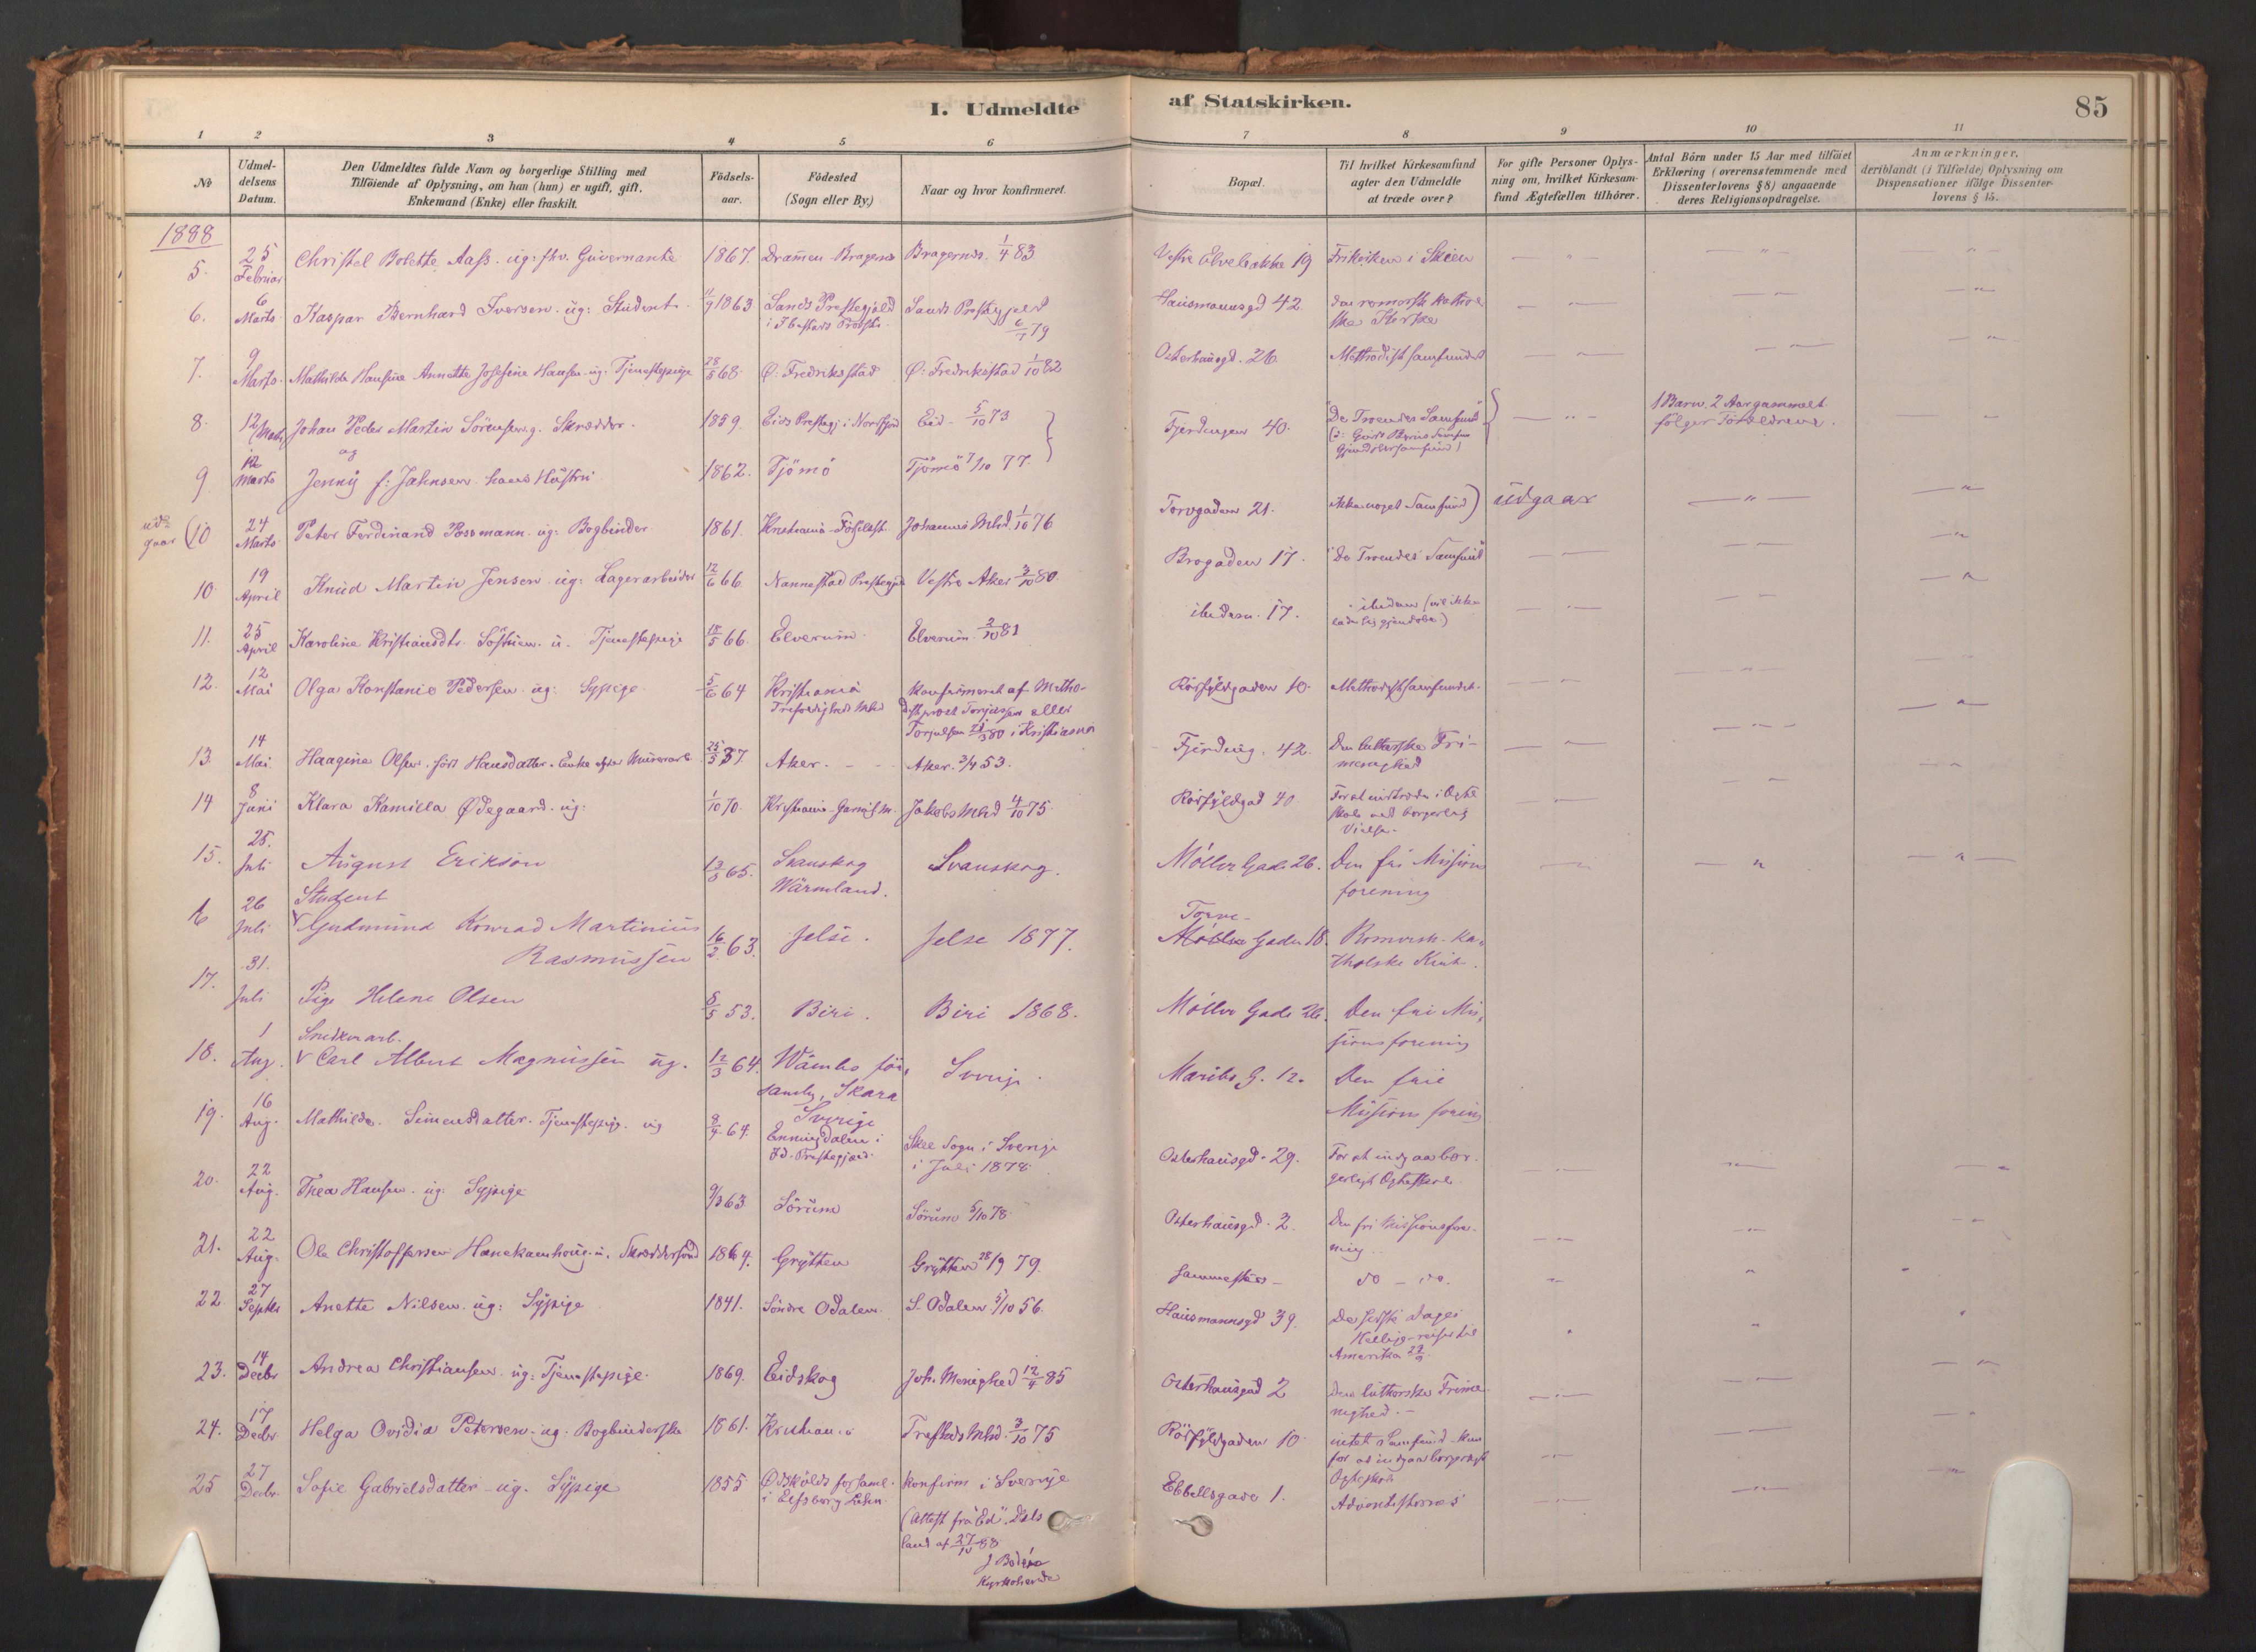 I. Udmeldte af Statskirken. 85
1 2 3 4 5 6 7 8 9 10 11
No
Udmeldelsens Datum.
Den Udmeldtes fulde Navn og borgerlige Stilling med Tilföiende af Oplysning, om han (hun) er ugift, gift, Enkemand (Enke) eller fraskilt.
Födselsaar.
Födested (Sogn eller By.)
Naar og hvor konfirmeret.
Bopæl.
Til hvilket Kirkesamfund agter den Udmeldte at træde over?
For gifte Personer Oplysning om, hvilket Kirkesamfund Ægtefællen tilhörer.
Antal Börn under 15 Aar med tilföiet Erklæring (overensstemmende med Dissenterlovens § 8) angaaende deres Religionsopdragelse.
Anmærkninger, deriblandt (i Tilfælde) Oplysning om Dispensationer ifölge Dissenterlovens § 15.
1888
5. 25 Februar Christel Bolette Aass. ug: fhv. Guvernante 1867. Dramen Bragernes Bragernes. 1/4 83 Vestre Elvebakke 19 Frikirken i Skien
6. 6 Marts Kaspar Bernhard Iversen. ug: Student 1863 Sands Prestegjeld i Ibestads Provsti Sands Prestegjeld 79 Hausmannsgd 42. den romersk katholske Kirke
7. 9 Marts. Mathilde Hansine Annette Josefine Hansen. ug. Tjenestepige 28/5 68. Ø. Fredriksstad Ø: Fredriksstad 1/10 82 Osterhausgd. 26. Methodistsamfundet
8. 12 Marts Johan Peder Martin Sörensen. g. Skrædder. 1859. Eids Prestegj. i Nordfjord Eid 5/10 73 Fjerdingen 40. "De Troendes Samfund" 1 Barn, 2 Aar gammelt følger Forældrene.
og
9 12 Marts Jenny f: Johnsen hans Hustru 1862. Tjömö Tjömö 7/10 77.
udgaar (10 24 Marts Peter Ferdinand Possmann. ug: Bogbinder 1861. Kristiania Johannes Mhd. 1/10 76 Torvgaden 21. ikke noget Samfund) udgaar
10. 19 April Knud Martin Jensen. ug: Lagerarbeider 12/6 66. Nannestad Prestegjeld Vestre Aker 3/10 80. Brogaden 17. "De Troendes Samfund"
11. 25 April Karoline Kristiansdtr. u. Tjenestepige 18/5 66. Elverum. Elverum 2/10 81 ibidem. 17. ibidem (vil ikke lade sig gjendøbe.)
12. 12 Mai Olga Konstanse Pedersen. ug: Sypige. 5/6 64 Kristiania Trefoldigheds Mhd konfirmeret af Methodistpræst Torjussen eller Torjulsen 80 i Kristiania Rörfyldgaden 10. Methodistsamfundet.
13. 14 Mai Haagine Olsen. født Hansdatter. Enke efter Murerarb. 25/5 37. Aker. Aker. 3/4 53. Fjerding. 42. Den lutherske Frimenighed
14 8 Juni Klara Kamilla Ødegaard. ug: 1/10 Kristiania Jakobs Mhd 4/10 75. Rörfyldgad 40. For at indtræde i Ægteskab ved borgerlig Vielse.
15. 25. Juli August Erikson 13/5 65. Skanskog Wärmland. Svanskog. Möller Gade 26. Den fri Missionsforening
26 Juli Student Gudmund Konrad Martinius Rasmussen 16/2 63. Jelse. Jelse 1877. Torve Gade 18. Romersk-katholske Kirk.
17. 31. Juli Pige Helene Olsen 8/5 53. Biri. Biri 1868. Möller Gade 26. Den fri Missionsforening
18. 1 Aug. Snedkerarb. Carl Albert Magnussen ug. 12/3 64. Wämbs församlg, Skara Sverige Sverige. Maribo G. 12. Den frie Missionsforening
19. 16 Aug. Mathilde Simensdatter. Tjenestepige. ug 8/4 64. Enningdalen i Id. Prestegjeld. Skee Sogn i Sverige i Juli 1878. Osterhausgd. 29. For at indgaa borgerligt Ægteskab.
20. 22 Aug. Thea Hansen. ug: Sypige 9/3 63. Sörum Sörum 5/10 78. Osterhausgd. 2. Den fri Missionsforening
21. 22 Aug. Ole Christoffersen Hanekamhoug. u. Skræddersvend 1864. Grytten Grytten 28/9 79. Sammesteds do – do.
22. 27 Septbr Anette Nilsen. ug: Sypige 1841. Söndre Odalen. S. Odalen 5/10 56. Hausmannsgd 39. De sidste Dages Hellige – reiser til Amerika
23. 14 Decbr Andrea Christiansen. ug: Tjenestepige. 1869. Eidskog Joh. Menighed 12/4 85 Osterhausgad 2 Den lutherske Frimenighed.
24. 17 Decbr Helga Ovidia Petersen. ug. Bogbinderske 1861. Kristiania Trefoldsh Mhd. 3/10 75 Rörfyldgaden 10. intet Samfund – kun for at indgaa borgerligt Ægteskab
25 27 Decbr. Sofie Gabrielsdatter. ug. Sypige 1855 Ödskölds forsaml. i Elfsborg Lehn. konfirm i Sverige (Attest fra "Ed", Dalsland af 27/10 88 Ebbellsgade 1. Adventisternes